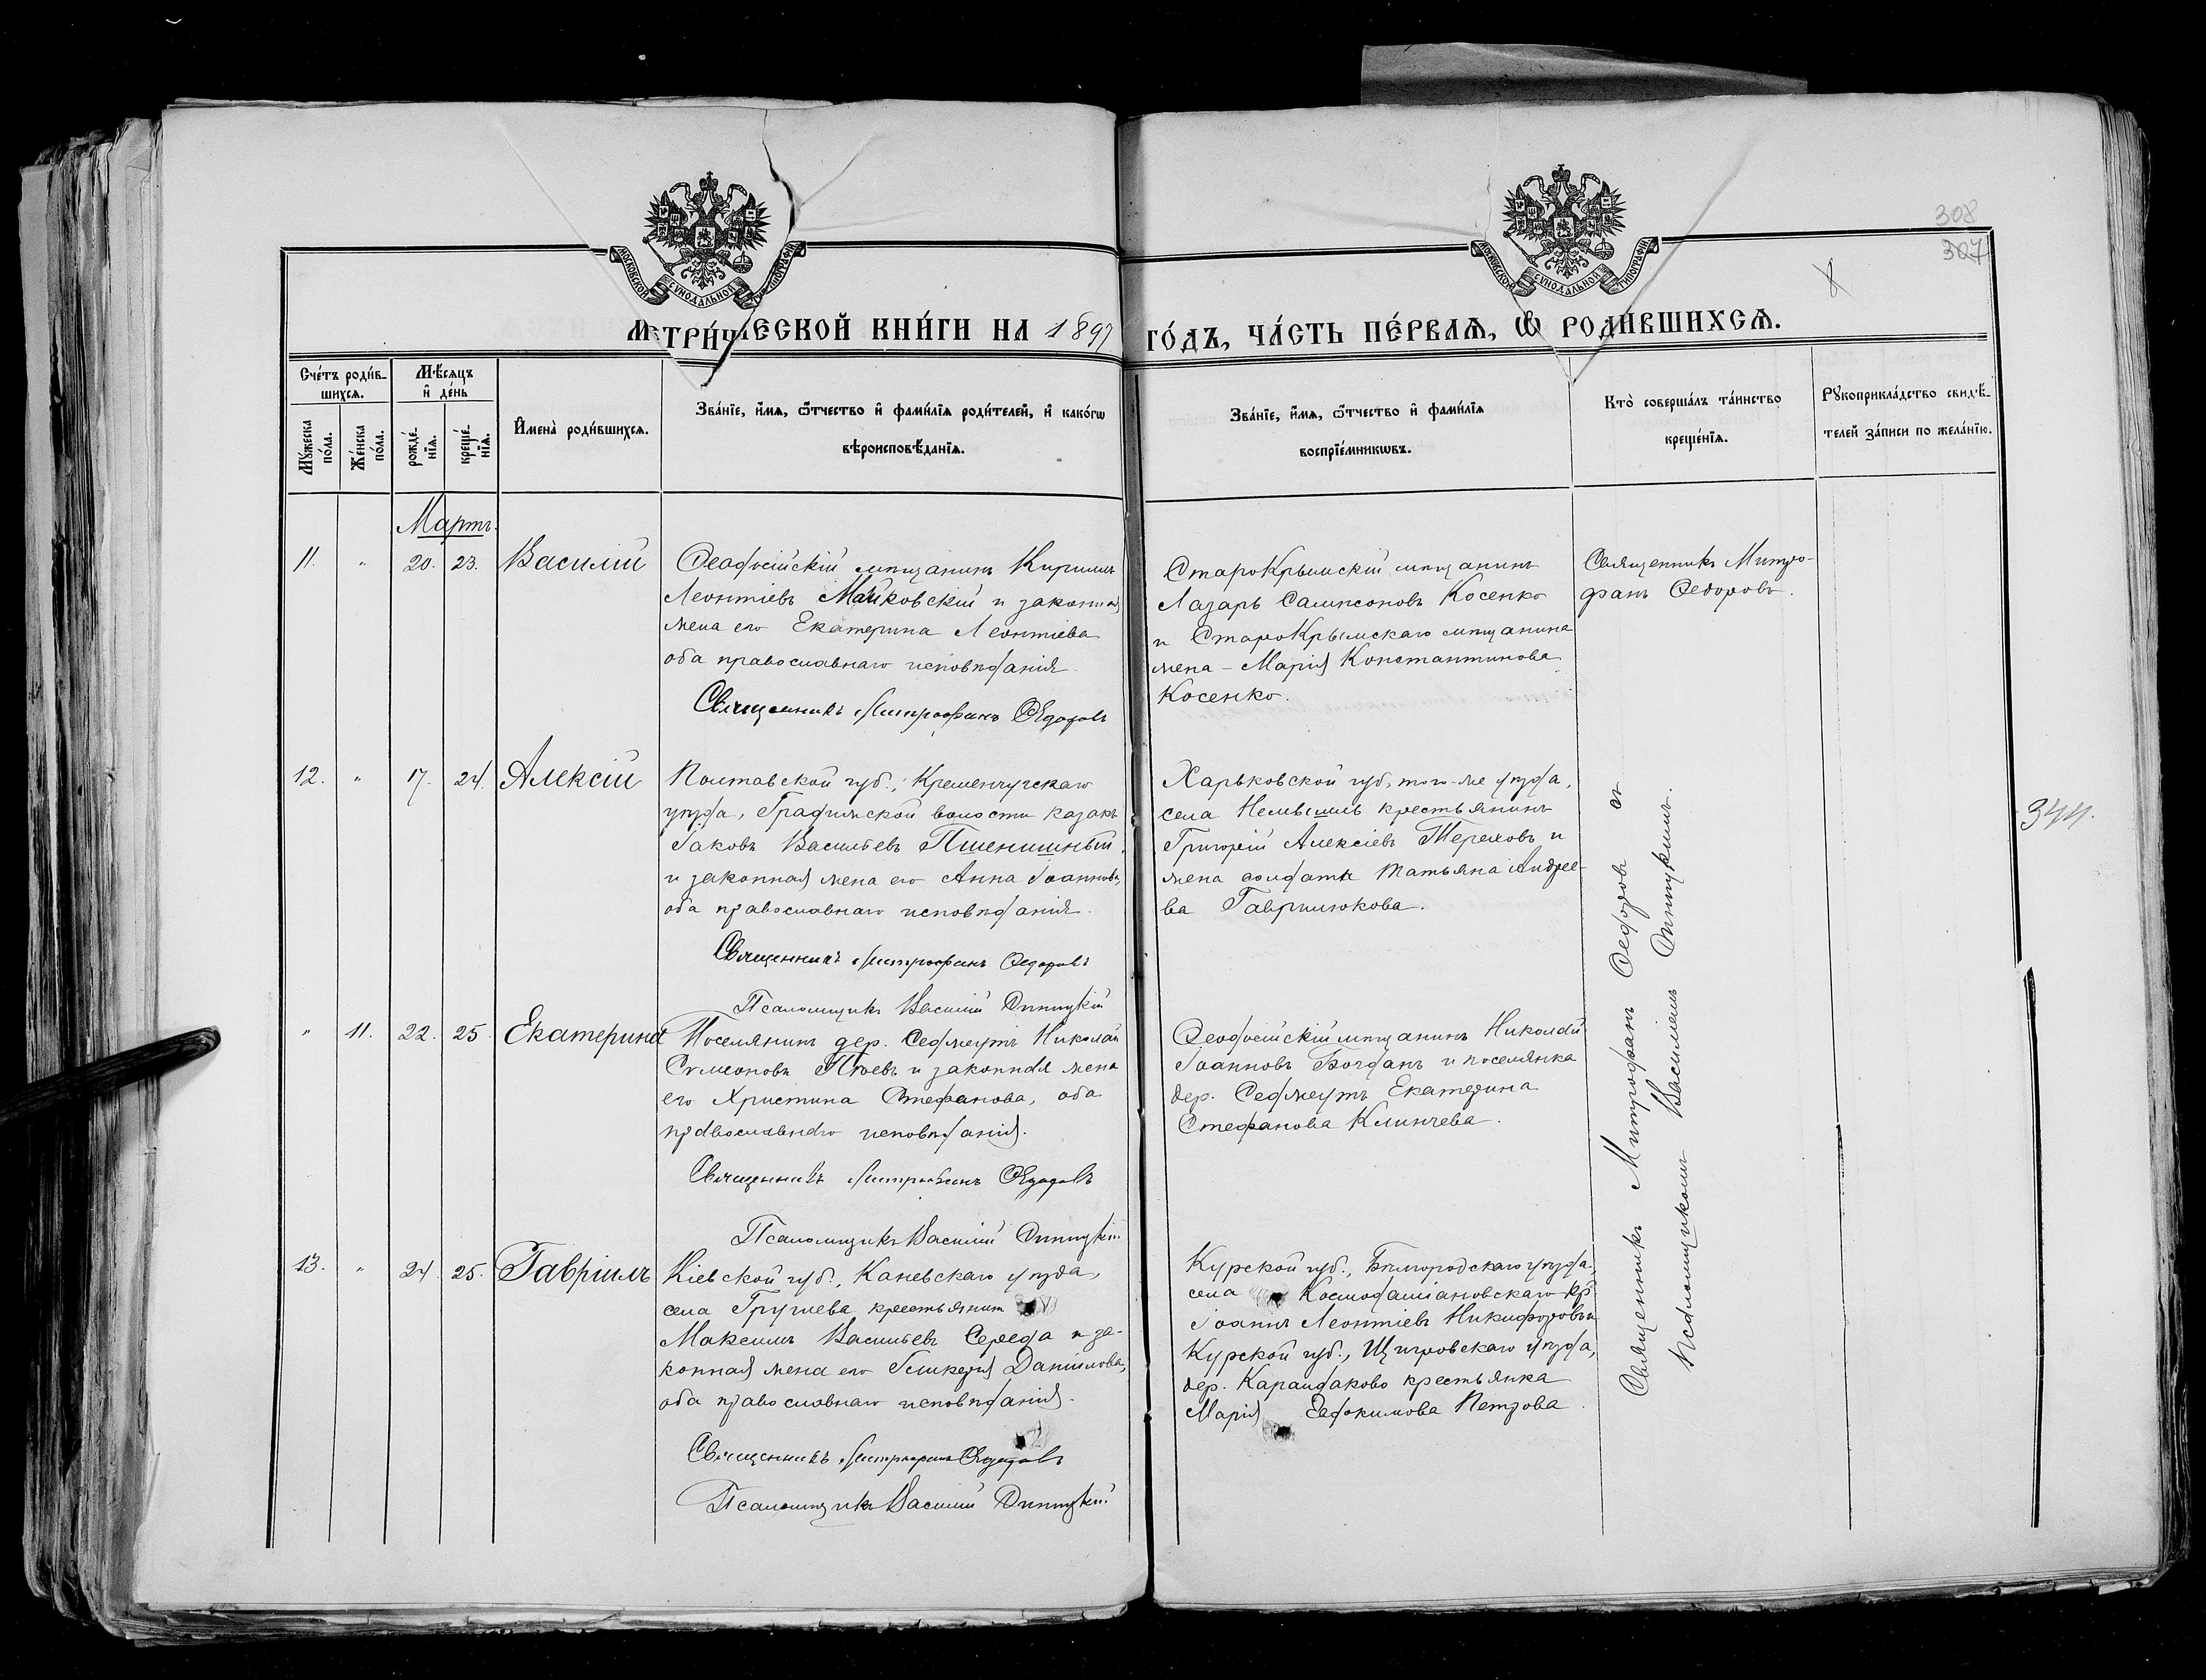 308
307
МОСКОВСКОЙ СѴНОДАЛЬНОЙ ТИПОГРАФІИ
МОСКОВСКОЙ СѴНОДАЛЬНОЙ ТИПОГРАФІИ
МЕТРИ́ЧЕСКОЙ КНИ́ГИ НА 1897 ГО́ДЪ, ЧА́СТЬ ПЕ́РВАѦ, Ѡ РОДИ́ВШИХСѦ.
Сче́тъ роди́в-
шихсѧ.
Мѣсѧцъ
и҆ де́нь
Мꙋ́жеска по́ла.
Же́нска по́ла.
рожде́-
нїѧ.
креще́-
нїѧ.
И҆мена̀ роди́вшихсѧ.
Зва́нїе, и҆́мѧ, ѻ҆́тчество и҆ фами́лїѧ роди́телей, и҆ како́гѡ
вѣроисповѣ́данїѧ.
Зва́нїе, и҆́мѧ, ѻ҆́тчество и҆ фами́лїѧ
воспрїе́мникѡвъ.
Кто̀ соверша́лъ та́инство
креще́нїѧ.
Рꙋкоприкла́дство свидѣ́-
телей за́писи по жела́нїю.
Мартъ.
11. " 20. 23. Василій
Ѳеодосійскій мѣщанинъ Кириллъ
Леонтіевъ Майковскій и законная
жена его Екатерина Леонтіева
оба православнаго исповѣданія.
Священникъ Митрофанъ Ѳедоровъ
СтароКрымскій мѣщанинъ
Лазарь Сампсоновъ Косенко
и СтароКрымскаго мѣщанина
жена – Марія Константинова
Косенко.
Священникъ Митро-
фанъ Ѳедоровъ.
12. " 17. 24. Алексій
Полтавской губ., Кременчугскаго
уѣзда, Градижской волости казакъ
Іаковъ Васильевъ Пшенишный,
и законная жена его Анна Іоаннова,
оба православнаго исповѣданія.
Священникъ Митрофанъ Ѳедоровъ
Псаломщикъ Василій
Харьковской губ., того-же уѣзда,
села Немышль крестьянинъ
Григорій Алексіевъ Тереховъ и
жена солдата Татьяна Андрее-
ва Гаврилюкова.
" 11. 22. 25. Екатерина
Поселянинъ дер. Седжеутъ Николай
Симеоновъ и законная жена
его Христина Стефанова, оба
православнаго исповѣданія.
Священникъ Митрофанъ Ѳедоровъ
Псаломщикъ Василій
Ѳеодосійскій мѣщанинъ Николай
Іоанновъ Богданъ и поселянка
дер. Седжеутъ Екатерина
Стефанова Клинчева.
13. " 24. 25. Гавріилъ
Кіевской губ., Каневскаго уѣзда,
села крестьянинъ
Максимъ Васильевъ Середа и за-
конная жена его Гликерія Даніилова,
оба православнаго исповѣданія.
Священникъ Митрофанъ Ѳедоровъ
Псаломщикъ Василій
Курской губ., Бѣлгородскаго уѣзда,
села Космодаміановскаго кр.
Іоаннъ Леонтіевъ Никифоровъ и
Курской губ., Щигровскаго уѣзда,
дер. Карандаково крестьянка
Марія Евдокимова Петрова.
Священникъ Митрофанъ Ѳедоровъ съ
псаломщикомъ Василіемъ
344.